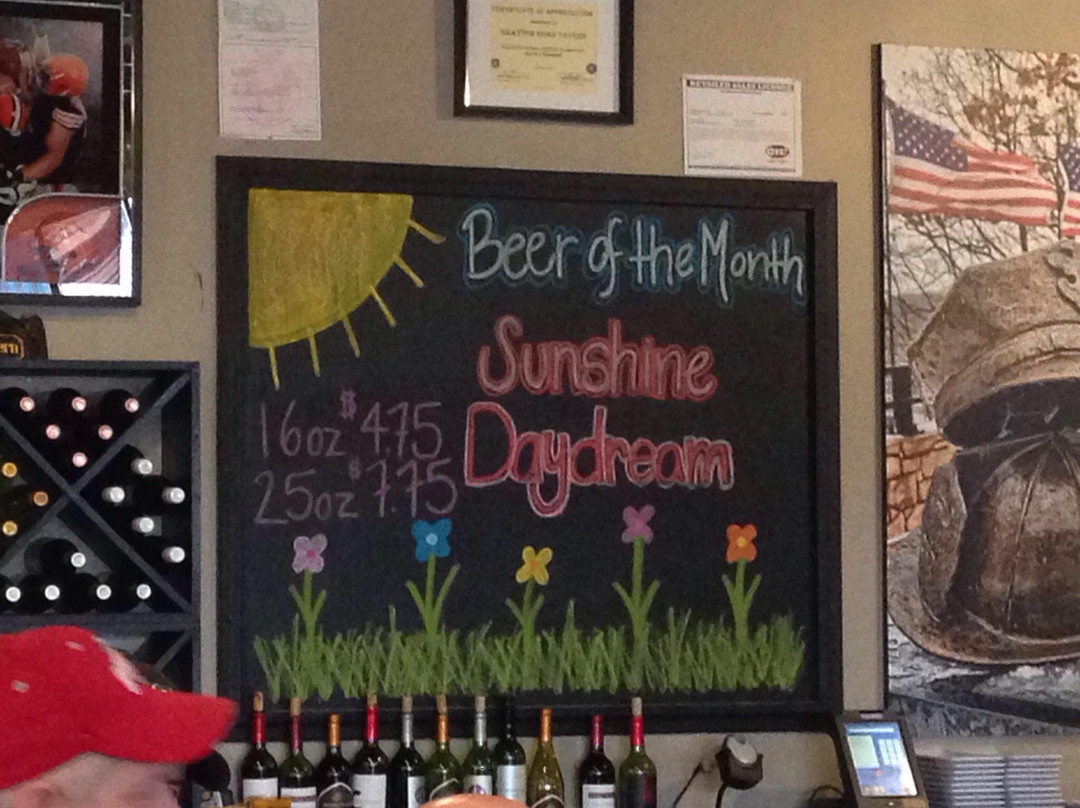 CERTIFICATE OF APPRECIATION
RETAILER SALES LICENSE
Beer of the Month
Sunshine
Daydream
16oz $4.75
25oz $7.75